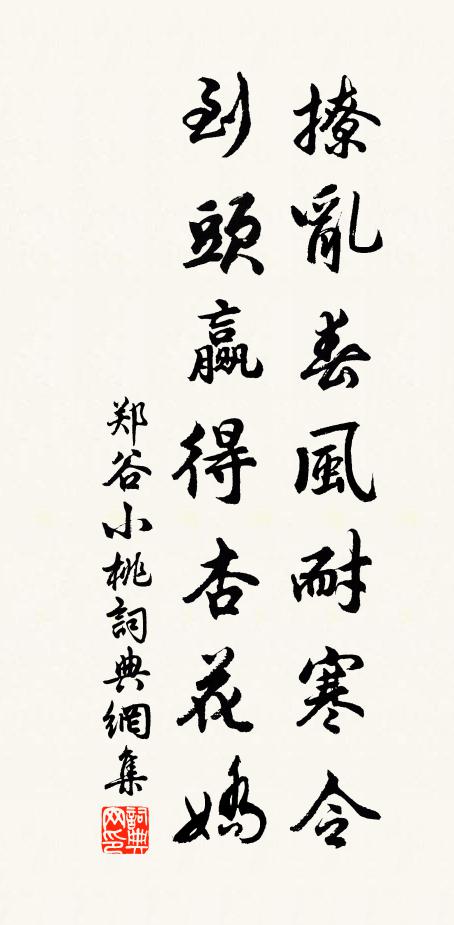 撩亂春風耐寒令
到頭贏得杏花嬌
郑谷小桃詞典網集
詞典
网印